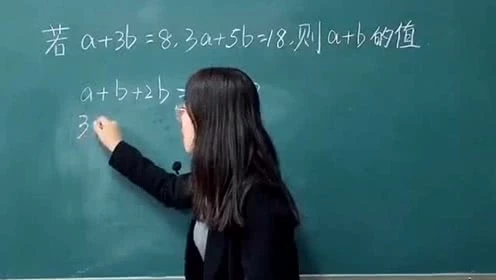 若 a+3b=8,3a+5b=18,则 a+b 的值
a+b+2b=
3